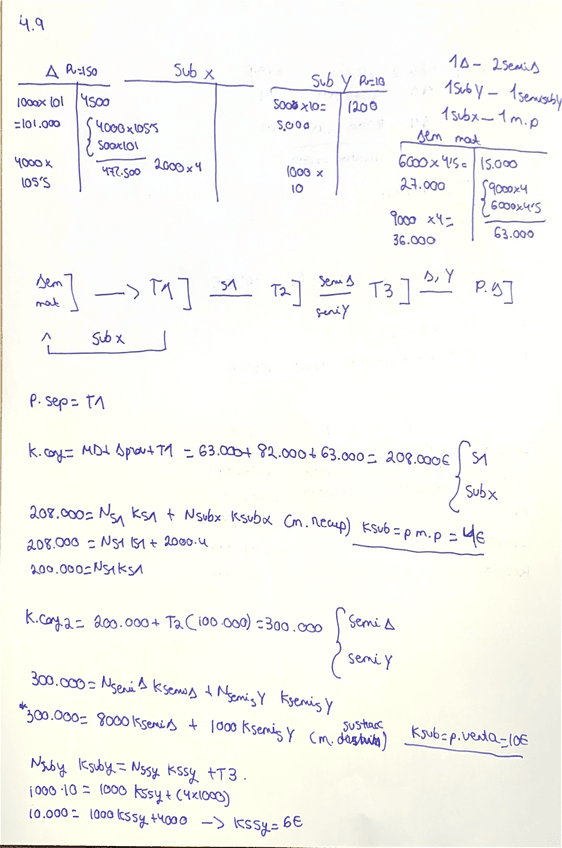 4.9
Δ Pv=150
1000x101 | 4500
=101.000 | 4000x105'5
500x101
4000x | 472.500
105'5
Sub x
2000x4
Sub Y Pv=10
500x10= | 1200
5.000
1000x
10
1Δ - 2semiΔ
1SubY - 1semisuby
1subx - 1 m.p
Sem mat
6000x4'5= | 15.000
27.000 | 9000x4
6000x4'5
9000 x4= | 63.000
36.000
Sem mat ] → T1 ] S1 T2 ] semiΔ semiY T3 ] Δ, Y P.Δ ]
Sub x
P. sep = T1
K.conj= MD+ Δprov+T1 = 63.000+ 82.000+ 63.000= 208.000€ { S1
Subx
208.000= NS1 KS1 + Nsubx Ksubx (m. recup) Ksub= p m.p = 4€
208.000 = NS1 KS1 + 2000.4
200.000=NS1KS1
K.conj2= 200.000+ T2(100.000)=300.000 { semi Δ
semi Y
300.000= NsemiΔ KsemiΔ + NsemisY KsemisY
*300.000= 8000 KsemiΔ + 1000 KsemisY (m. sustrac) Ksub=p.venta=10€
Nsuby Ksuby= Nssy Kssy +T3.
1000.10= 1000 Kssy+ (4x1000)
10.000= 1000 Kssy+4000 -> Kssy= 6€